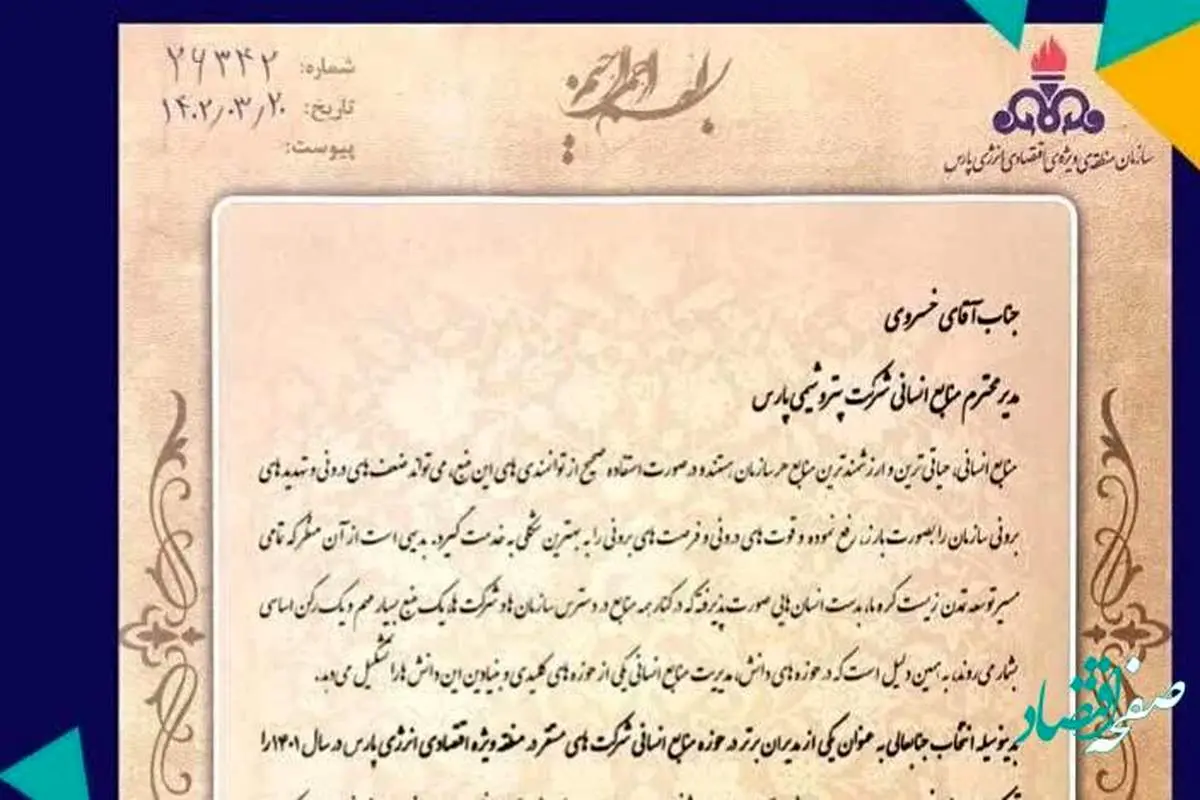 شماره: ۲۶۳۴۲
تاریخ: ۱۴۰۲/۰۳/۲۰
پیوست:
بسم الله الرحمن الرحیم
سازمان منطقه‌ی ویژه‌ی اقتصادی انرژی پارس
جناب آقای خسروی
مدیر محترم منابع انسانی شرکت پتروشیمی پارس
منابع انسانی، حیاتی ترین و ارزشمندترین منابع هر سازمان هستند و در صورت استفاده صحیح از توانمندی های این منبع، می تواند ضعف های درونی و تهدیدهای
برونی سازمان را بصورت بارز، رفع نموده و قوت های درونی و فرصت های برونی را به بهترین شکلی به خدمت گیرد. بدیهی است از آن منظر که تمامی
مسیر توسعه تمدن زیست کره ما، بدست انسان هایی صورت پذیرفته که در کنار همه منابع در دسترس سازمان ها و شرکت ها، یک منبع بسیار مهم و یک رکن اساسی
بشمار می روند، به همین دلیل است که در حوزه های دانش، مدیریت منابع انسانی یکی از حوزه های کلیدی و بنیادین این دانش ها را تشکیل می دهد.
بدینوسیله انتخاب جنابعالی به عنوان یکی از مدیران برتر در حوزه منابع انسانی شرکت های مستقر در منطقه ویژه اقتصادی انرژی پارس در سال ۱۴۰۱ را
صفحه اقتصاد